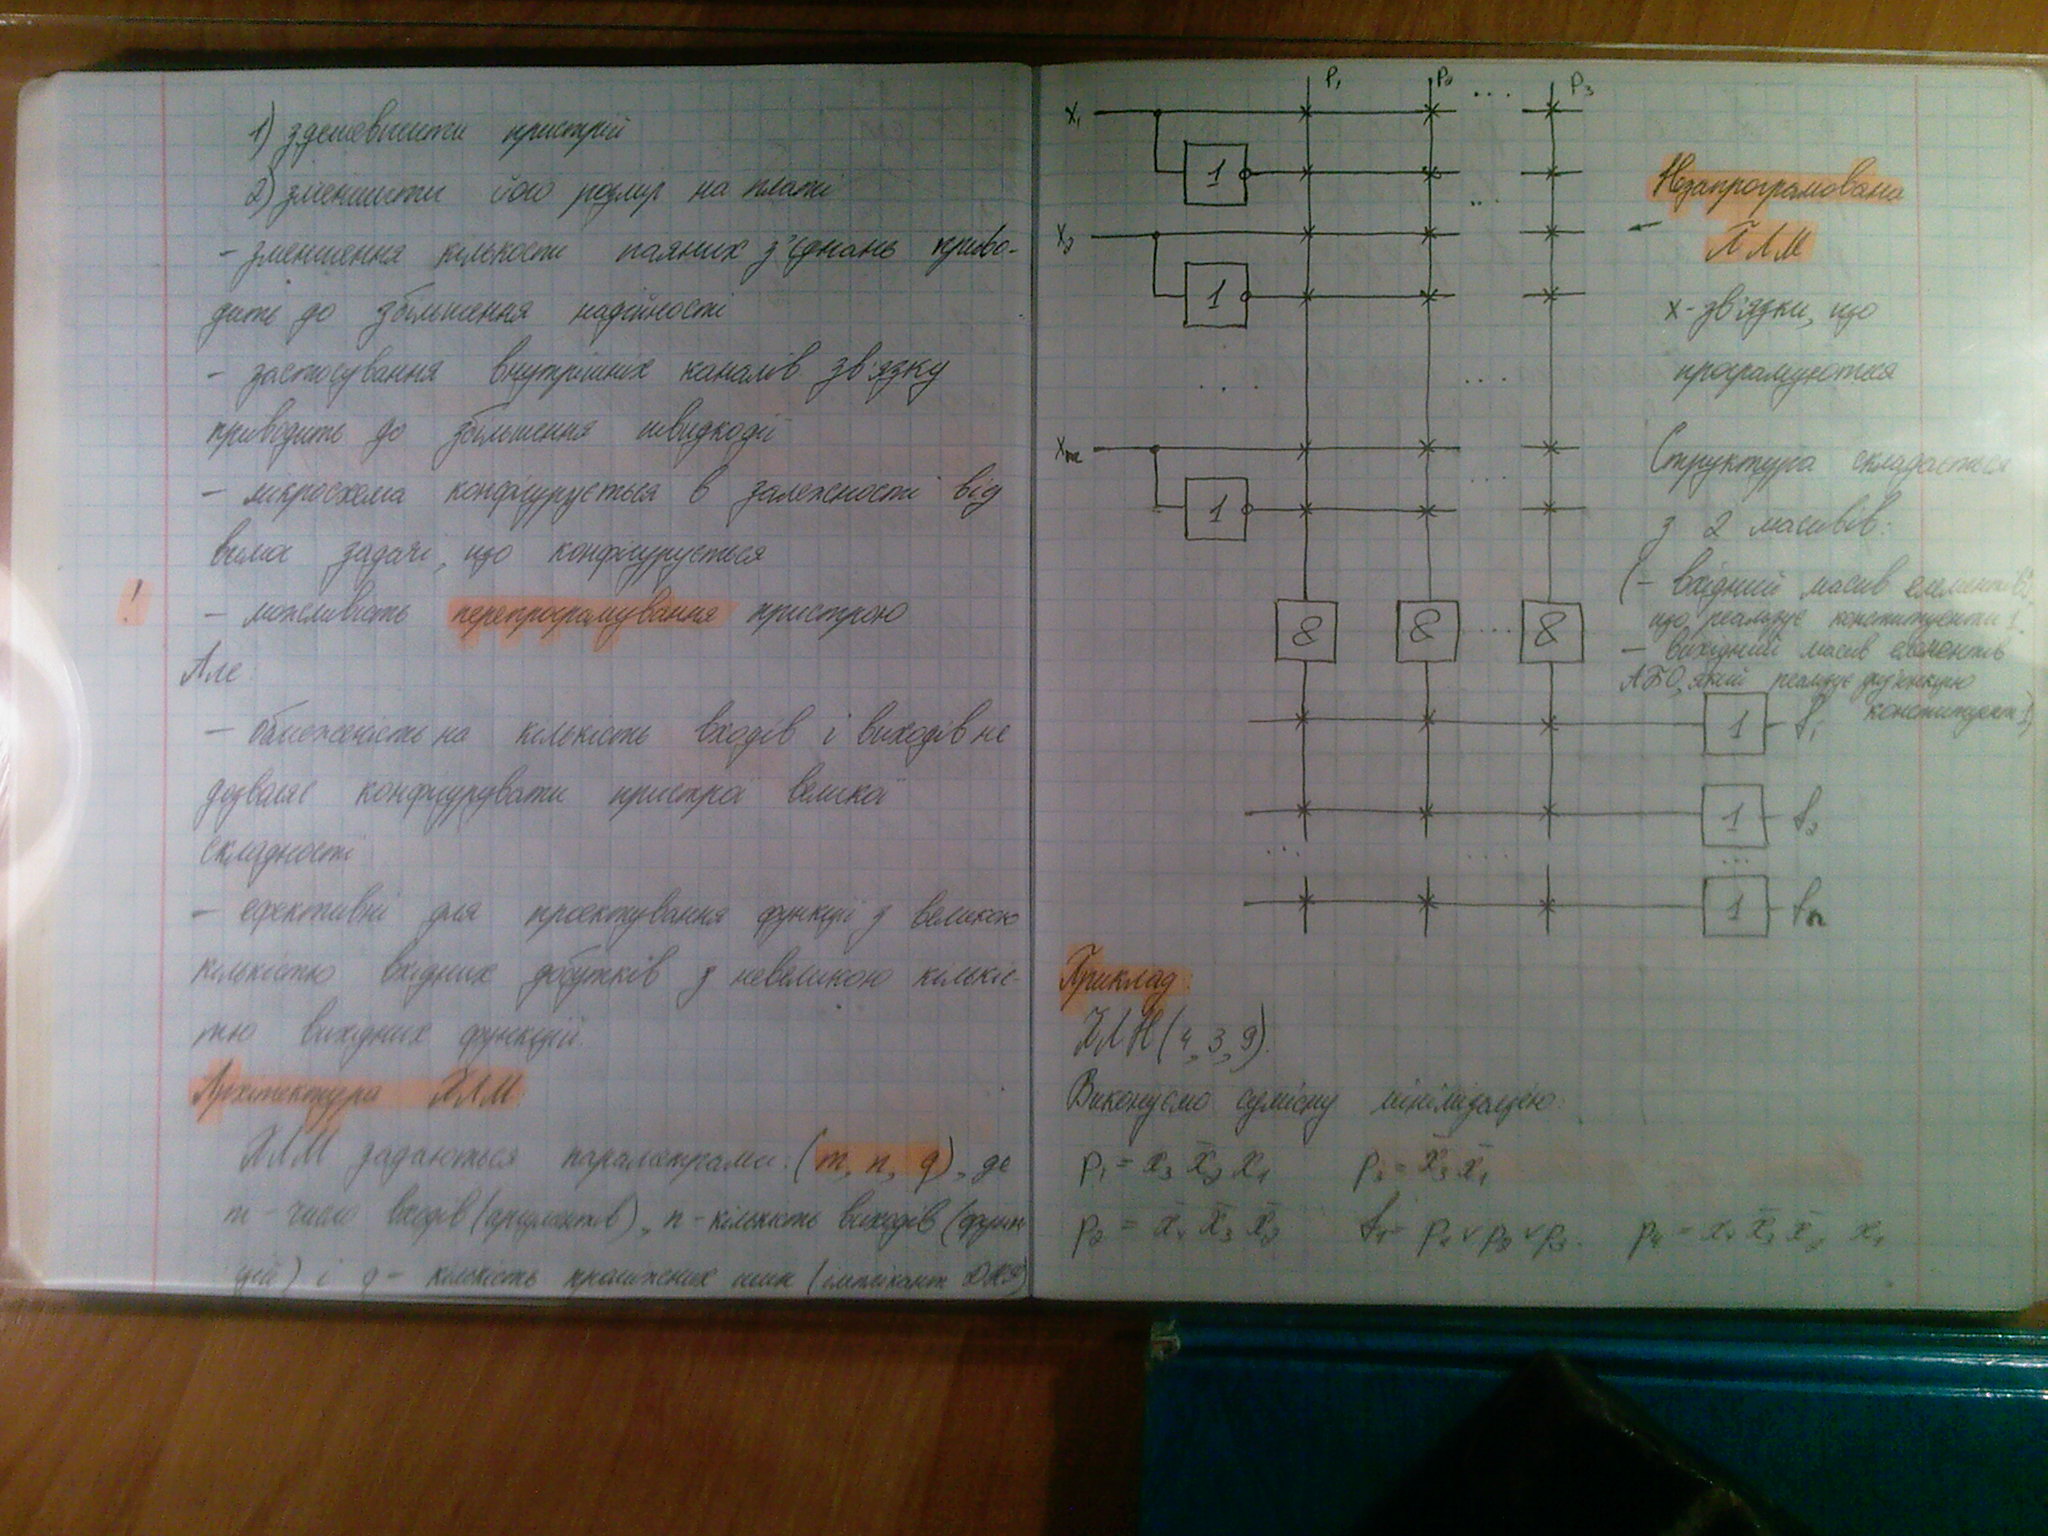 1) здешевшити пристрій
2) зменшити його розмір на платі
- зменшення кількости паяних з'єднань приво-
дить до збільшення надійності
- застосування внутрішніх каналів зв'язку
приводить до збільшення швидкодії
- мікросхема конфігурується в залежності від
задачі, що конфігурується
! - можливість перепрограмування пристрою
Але
- обмеженість на кількість входів і виходів не
дозваляє конфігурувати пристрої великої
складності
- ефективні для проектування функцій з великою
кількістю вхідних добутків з невеликою кількіс-
тю вихідних функцій.
Архітектура ПЛМ
ПЛМ задаються параметрами (m, n, q), де
m - число входів (аргументів), n - кількість виходів (функ
цій) і q - кількість проміжених шин (імплікант ДНФ)
P₁ P₂ ... P₃
x₁
1
x₂
1
... ...
xₘ
1
& & ... &
1 f₁
1 f₂
... ... ...
1 fₙ
Незапрограмована
ПЛМ
x - зв'язки, що
програмуються
Структура складається
з 2 масивів:
(- вхідний масив елементів
що реалізує конституенти 1
- вихідний масив елементів
АБО, який реалізує диз'юнкцію
конституент 1)
Приклад:
ПЛМ (4, 3, 9).
Виконуємо сумісну мінімізацію:
P₁ = x₃ x̄₂ x₁ P₃ = x̄₃ x̄₁
P₂ = x̄₄ x̄₃ x̄₂ f₁ = P₁ v P₂ v P₃. P₄ =